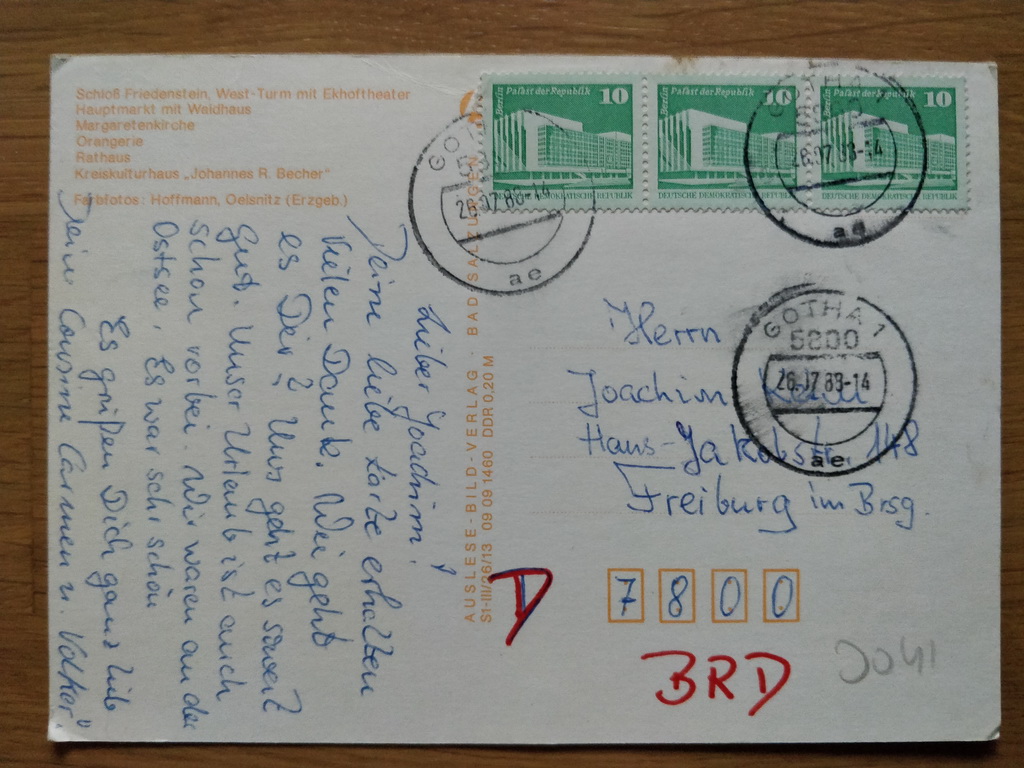 Schloß Friedenstein, West-Turm mit Ekhoftheater
Hauptmarkt mit Waidhaus
Margaretenkirche
Orangerie
Rathaus
Kreiskulturhaus „Johannes R. Becher"
Farbfotos: Hoffmann, Oelsnitz (Erzgeb.)
Lieber Joachim!
Deine liebe Karte erhalten
Vielen Dank. Wie geht
es Dir? Uns geht es soweit
Gut. Unser Urlaub ist auch
schon vorbei. Wir waren an der
Ostsee. Es war sehr schön
Es grüßen Dich ganz lieb
Deine Cousine Carmen u. Volker
AUSLESE-BILD-VERLAG · BAD SALZUNGEN
S1-III/26/13 09 09 1460 DDR 0,20 M
Berlin Palast der Republik 10
DEUTSCHE DEMOKRATISCHE REPUBLIK
Berlin Palast der Republik 10
DEUTSCHE DEMOKRATISCHE REPUBLIK
Berlin Palast der Republik 10
DEUTSCHE DEMOKRATISCHE REPUBLIK
GOTHA 1
26.07.83-14
ae
GOTHA 1
5800
26.07.83-14
ae
Herrn
Joachim
Hans-Jakobstr. 148
Freiburg im Brsg.
D
7800
BRD